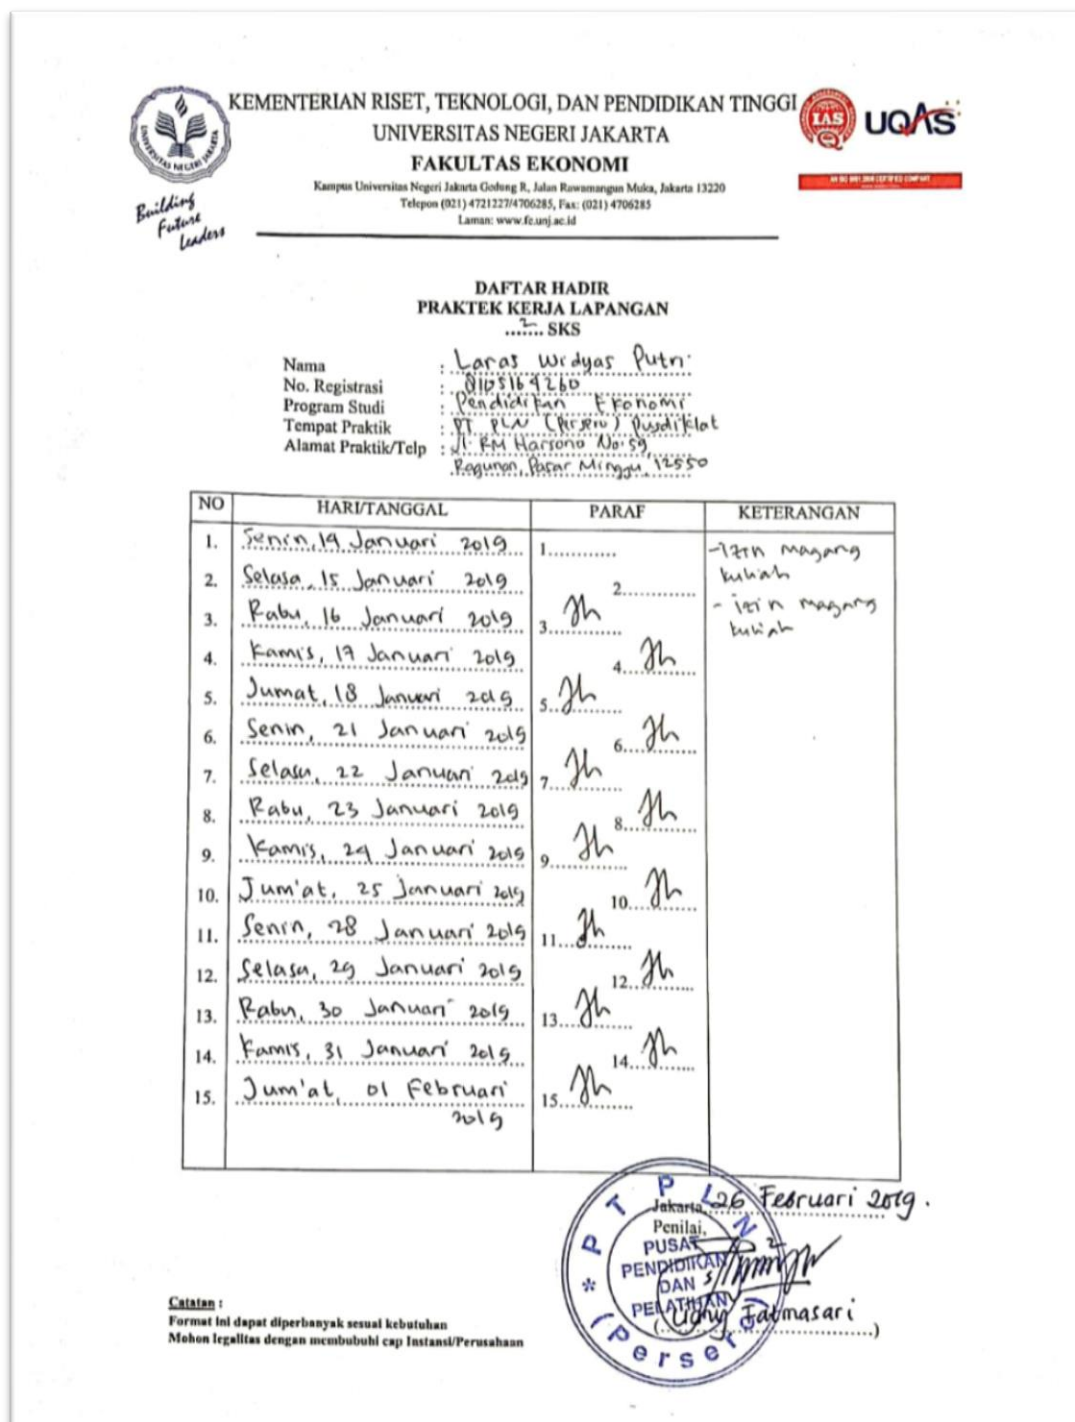 KEMENTERIAN RISET, TEKNOLOGI, DAN PENDIDIKAN TINGGI
UNIVERSITAS NEGERI JAKARTA
FAKULTAS EKONOMI
Kampus Universitas Negeri Jakarta Gedung R, Jalan Rawamangun Muka, Jakarta 13220
Telepon (021) 4721227/4706285, Fax: (021) 4706285
Laman: www.fe.unj.ac.id
UNIVERSITAS NEGERI JAKARTA
Building
Future
Leaders
IAS
UQAS
AN ISO 9001:2008 CERTIFIED COMPANY
DAFTAR HADIR
PRAKTEK KERJA LAPANGAN
...2... SKS
Nama : Laras Widyas Putri
No. Registrasi : 8105164260
Program Studi : Pendidikan Ekonomi
Tempat Praktik : PT PLN (Persero) Pusdiklat
Alamat Praktik/Telp : Jl. RM Harsono No.59,
Ragunan, Pasar Minggu, 12550
NO HARI/TANGGAL PARAF KETERANGAN
1. Senin, 14 Januari 2019 1............ - izin magang
kuliah
2. Selasa, 15 Januari 2019 2............ - izin magang
kuliah
3. Rabu, 16 Januari 2019 3............
4. Kamis, 17 Januari 2019 4............
5. Jumat, 18 Januari 2019 5............
6. Senin, 21 Januari 2019 6............
7. Selasa, 22 Januari 2019 7............
8. Rabu, 23 Januari 2019 8............
9. Kamis, 24 Januari 2019 9............
10. Jum'at, 25 Januari 2019 10............
11. Senin, 28 Januari 2019 11............
12. Selasa, 29 Januari 2019 12............
13. Rabu, 30 Januari 2019 13............
14. Kamis, 31 Januari 2019 14............
15. Jum'at, 01 Februari 15............
2019
Jakarta, 26 Februari 2019.
Penilai,
PT PLN
PUSAT
PENDIDIKAN
DAN
PELATIHAN
(Persero)
Fatmasari
Catatan :
Format ini dapat diperbanyak sesuai kebutuhan
Mohon legalitas dengan membubuhi cap Instansi/Perusahaan